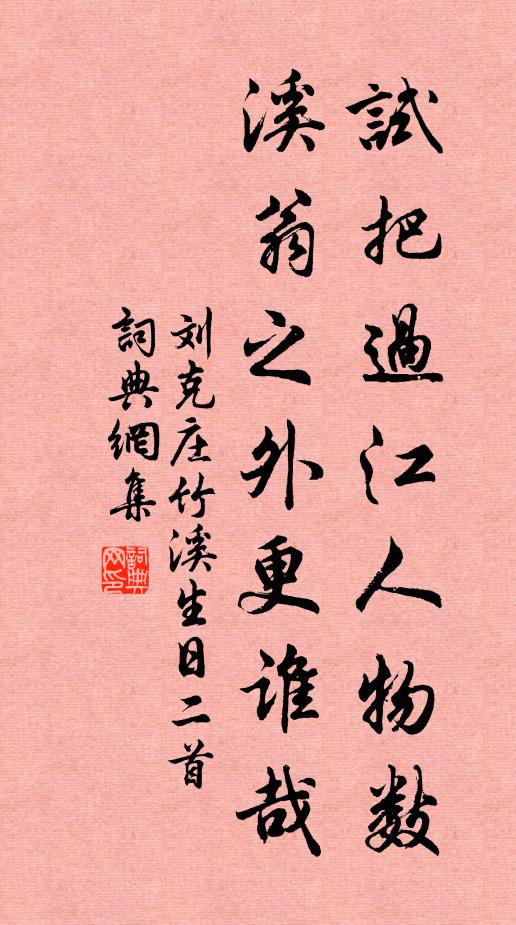 試把過江人物數
溪翁之外更誰哉
刘克庄竹溪生日二首
詞典網集
詞典
网印